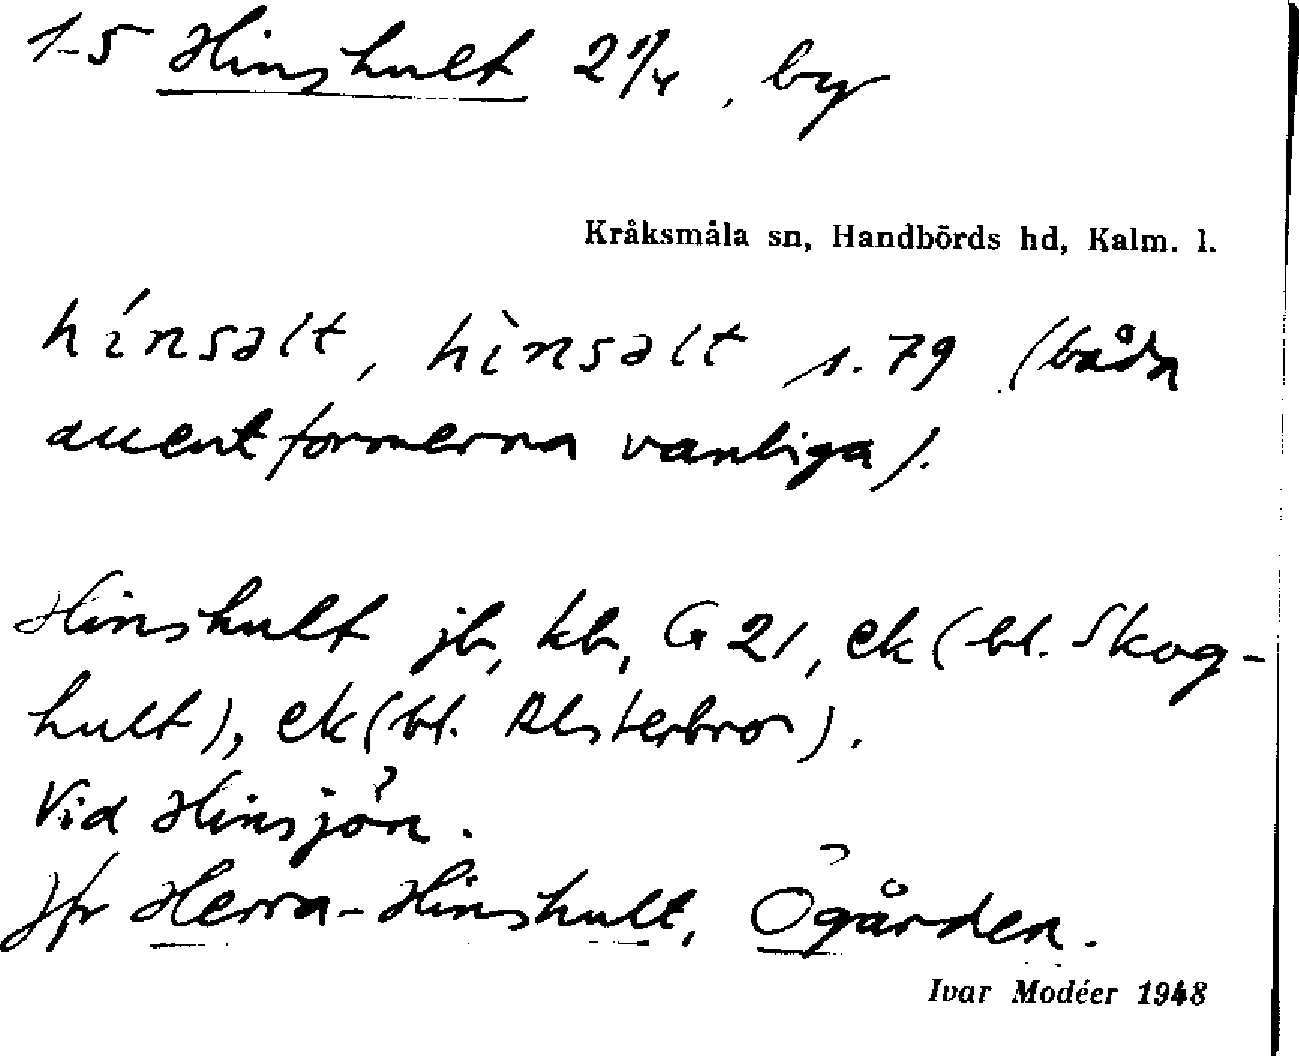 1-5 Hinshult 2 1/4, by
Kråksmåla sn, Handbörds hd, Kalm. l.
hínsalt, hìnsalt s. 79 (båda
accentformerna vanliga).
Hinshult jb, kb, G 21, ek (bl. Skog-
hult), ek (bl. Alsterbro).
Vid Hinsjön.
Jfr Herra-Hinshult, Ögården.
Ivar Modéer 1948